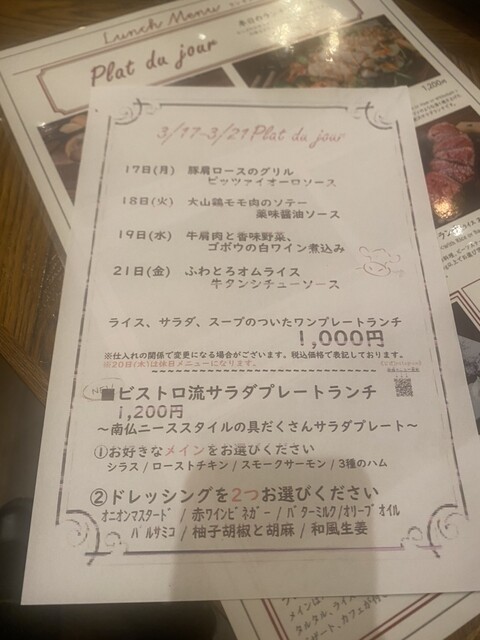 Lunch Menu
Plat du jour
1,200円
3/17-3/21 Plat du jour
17日(月) 豚肩ロースのグリル
ピッツァイオーロソース
18日(火) 大山鶏モモ肉のソテー
薬味醤油ソース
19日(水) 牛肩肉と香味野菜、
ゴボウの白ワイン煮込み
21日(金) ふわとろオムライス
牛タンシチューソース
ライス、サラダ、スープのついたワンプレートランチ
1,000円
※仕入れの関係で変更になる場合がございます。税込価格で表記しております。
※20日(木)は休日メニューになります。
NEW
■ビストロ流サラダプレートランチ
1,200円
～南仏ニーススタイルの具だくさんサラダプレート～
①お好きなメインをお選びください
シラス / ローストチキン / スモークサーモン / 3種のハム
②ドレッシングを2つお選びください
オニオンマスタード / 赤ワインビネガー / バターミルク/オリーブオイル
バルサミコ / 柚子胡椒と胡麻 / 和風生姜